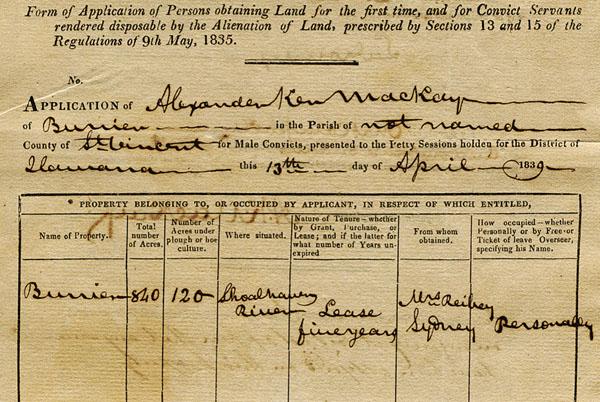 Form of Application of Persons obtaining Land for the first time, and for Convict Servants
rendered disposable by the Alienation of Land, prescribed by Sections 13 and 15 of the
Regulations of 9th May, 1835.
No.
APPLICATION of Alexander Ken MacKay
of Burrier in the Parish of not named
County of St. Vincent for Male Convicts, presented to the Petty Sessions holden for the District of
Illawarra this 13th day of April 1839
* PROPERTY BELONGING TO, OR OCCUPIED BY APPLICANT, IN RESPECT OF WHICH ENTITLED,
Name of Property.
Total number of Acres.
Number of Acres under plough or hoe culture.
Where situated.
Nature of Tenure—whether by Grant, Purchase, or Lease; and if the latter for what number of Years unexpired
From whom obtained.
How occupied—whether Personally or by Free or Ticket of leave Overseer, specifying his Name.
Burrier 840 120 Shoalhaven River Lease five years Mrs Reibey Sydney Personally